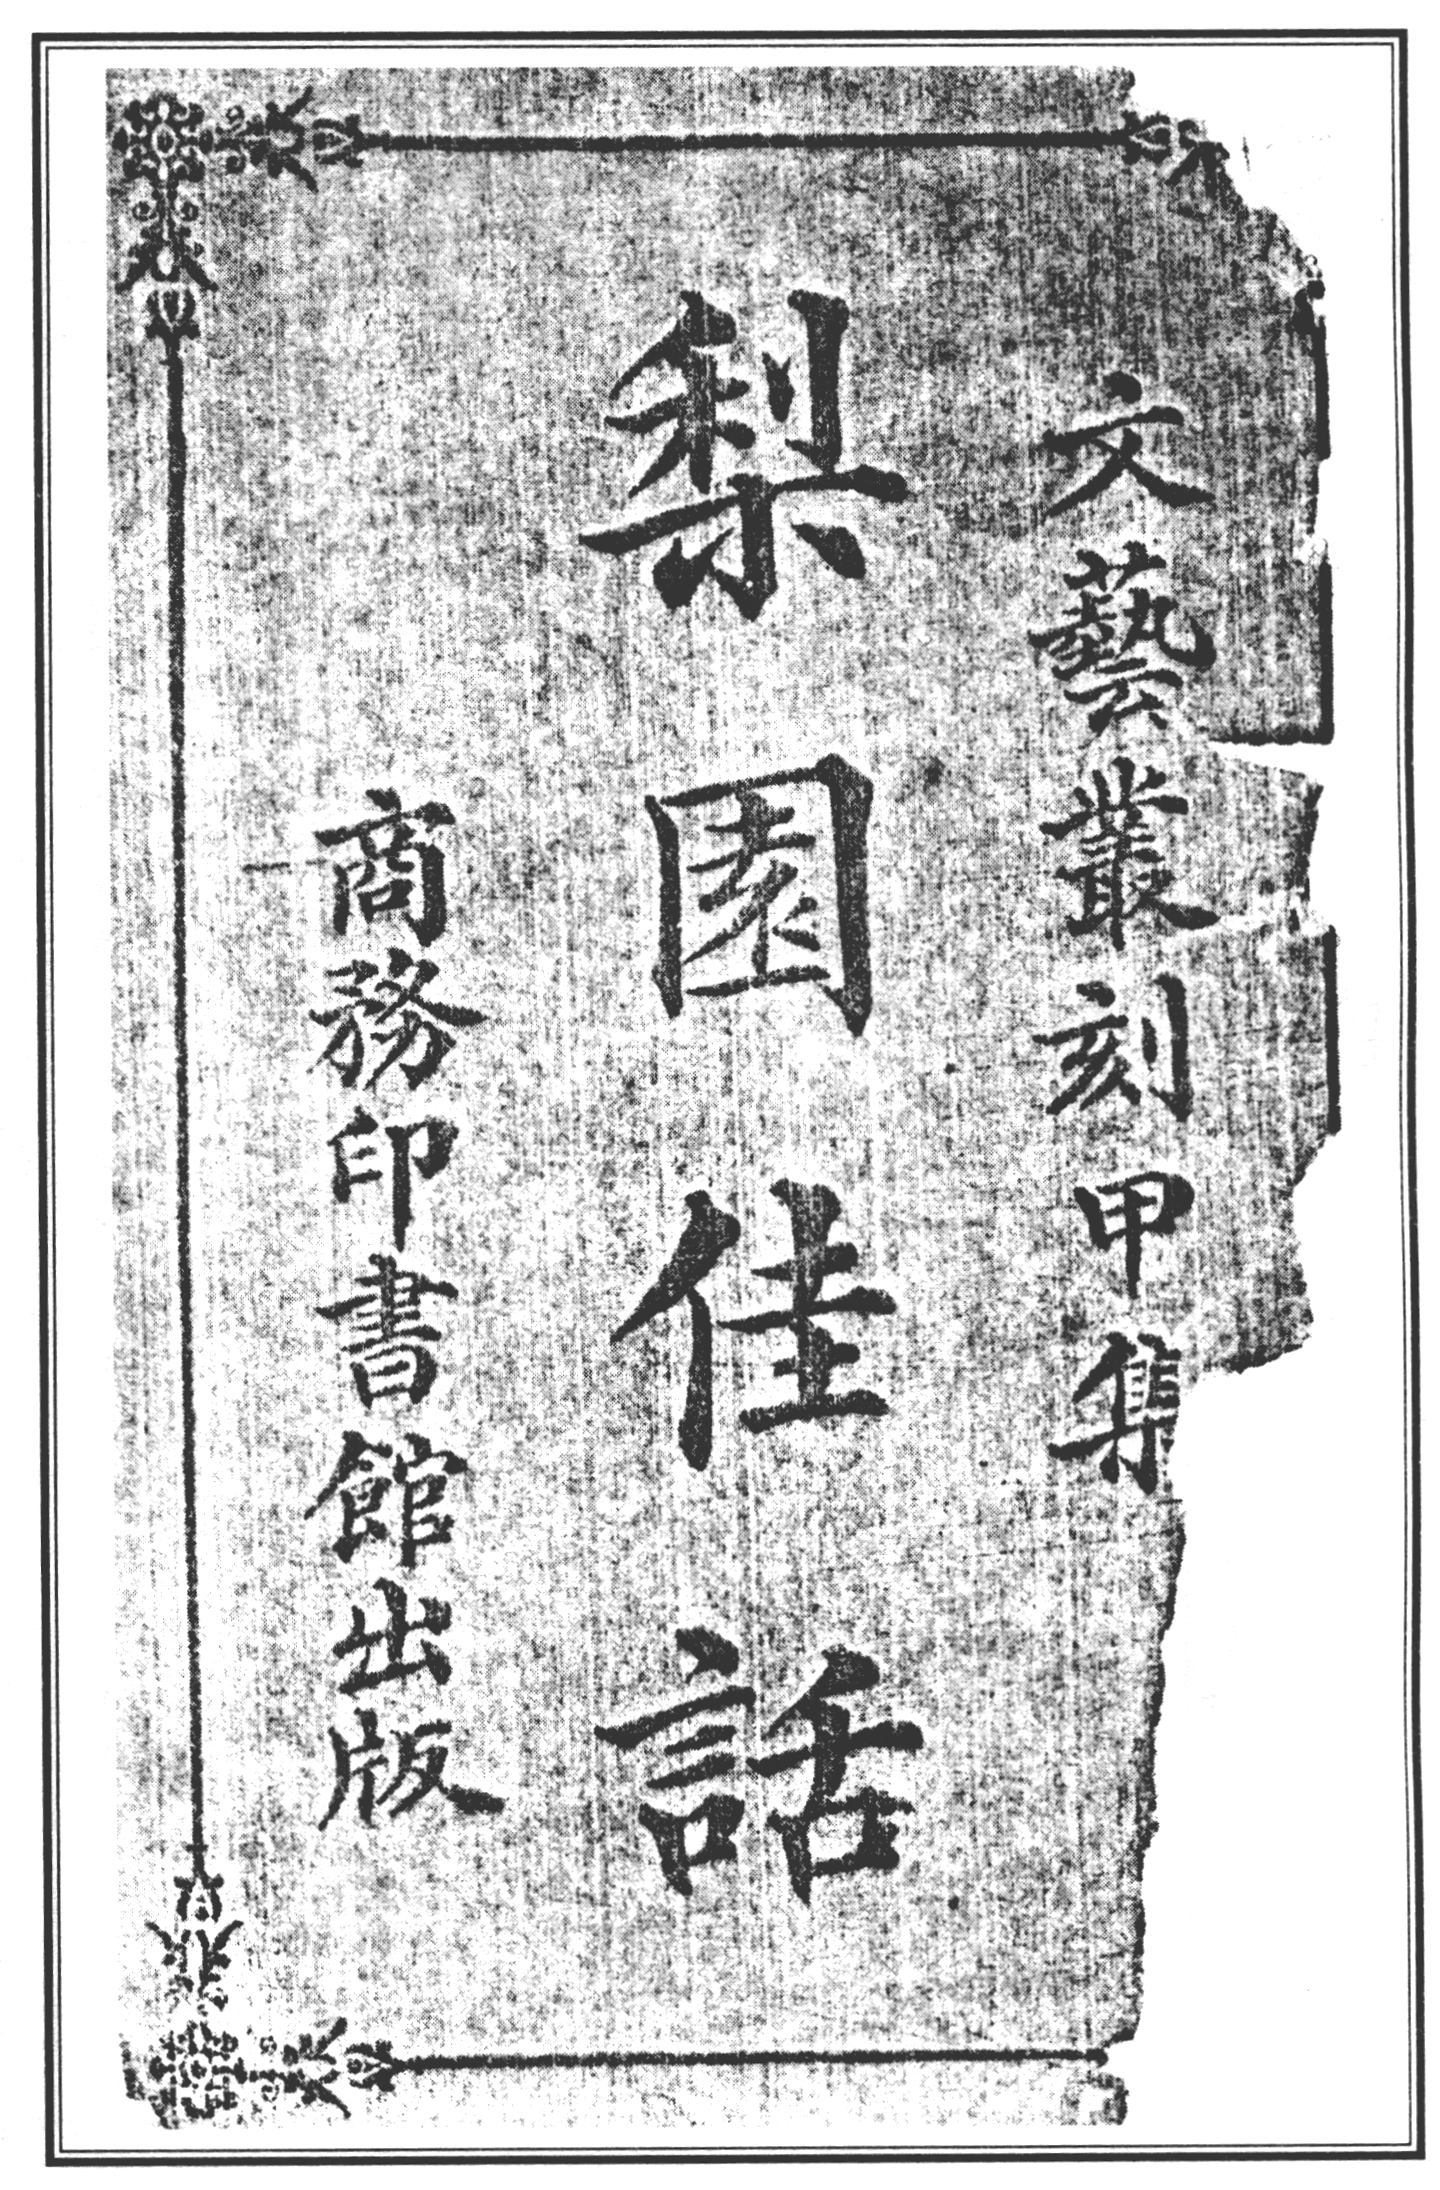 文藝叢刻甲集
梨園佳話
商務印書館出版